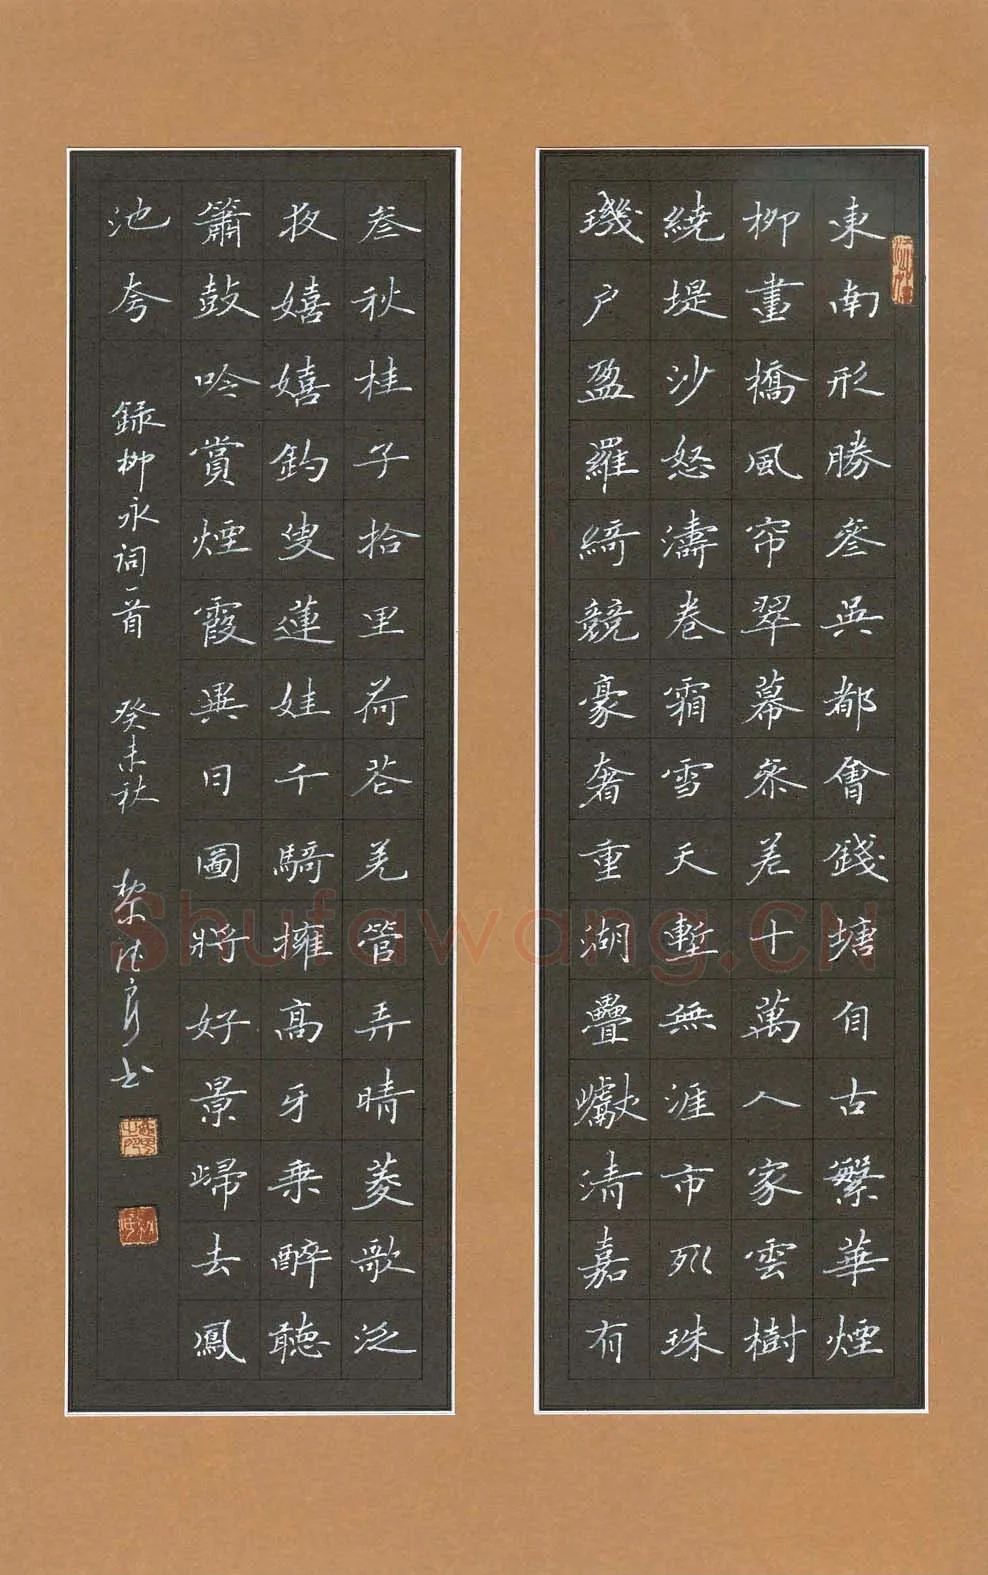 東南形勝叄吳都會錢塘自古繁華煙
柳畫橋風帘翠幕叅差十萬人家雲樹
繞堤沙怒濤卷霜雪天塹無涯市列珠
璣户盈羅綺競豪奢重湖疊巘清嘉有
叄秋桂子拾里荷花羌管弄晴菱歌泛
夜嬉嬉釣叟蓮娃千騎擁高牙乘醉聽
簫鼓吟賞煙霞異日圖將好景歸去鳳
池夸 録柳永詞一首 癸未秋 书
Shufawang.CN